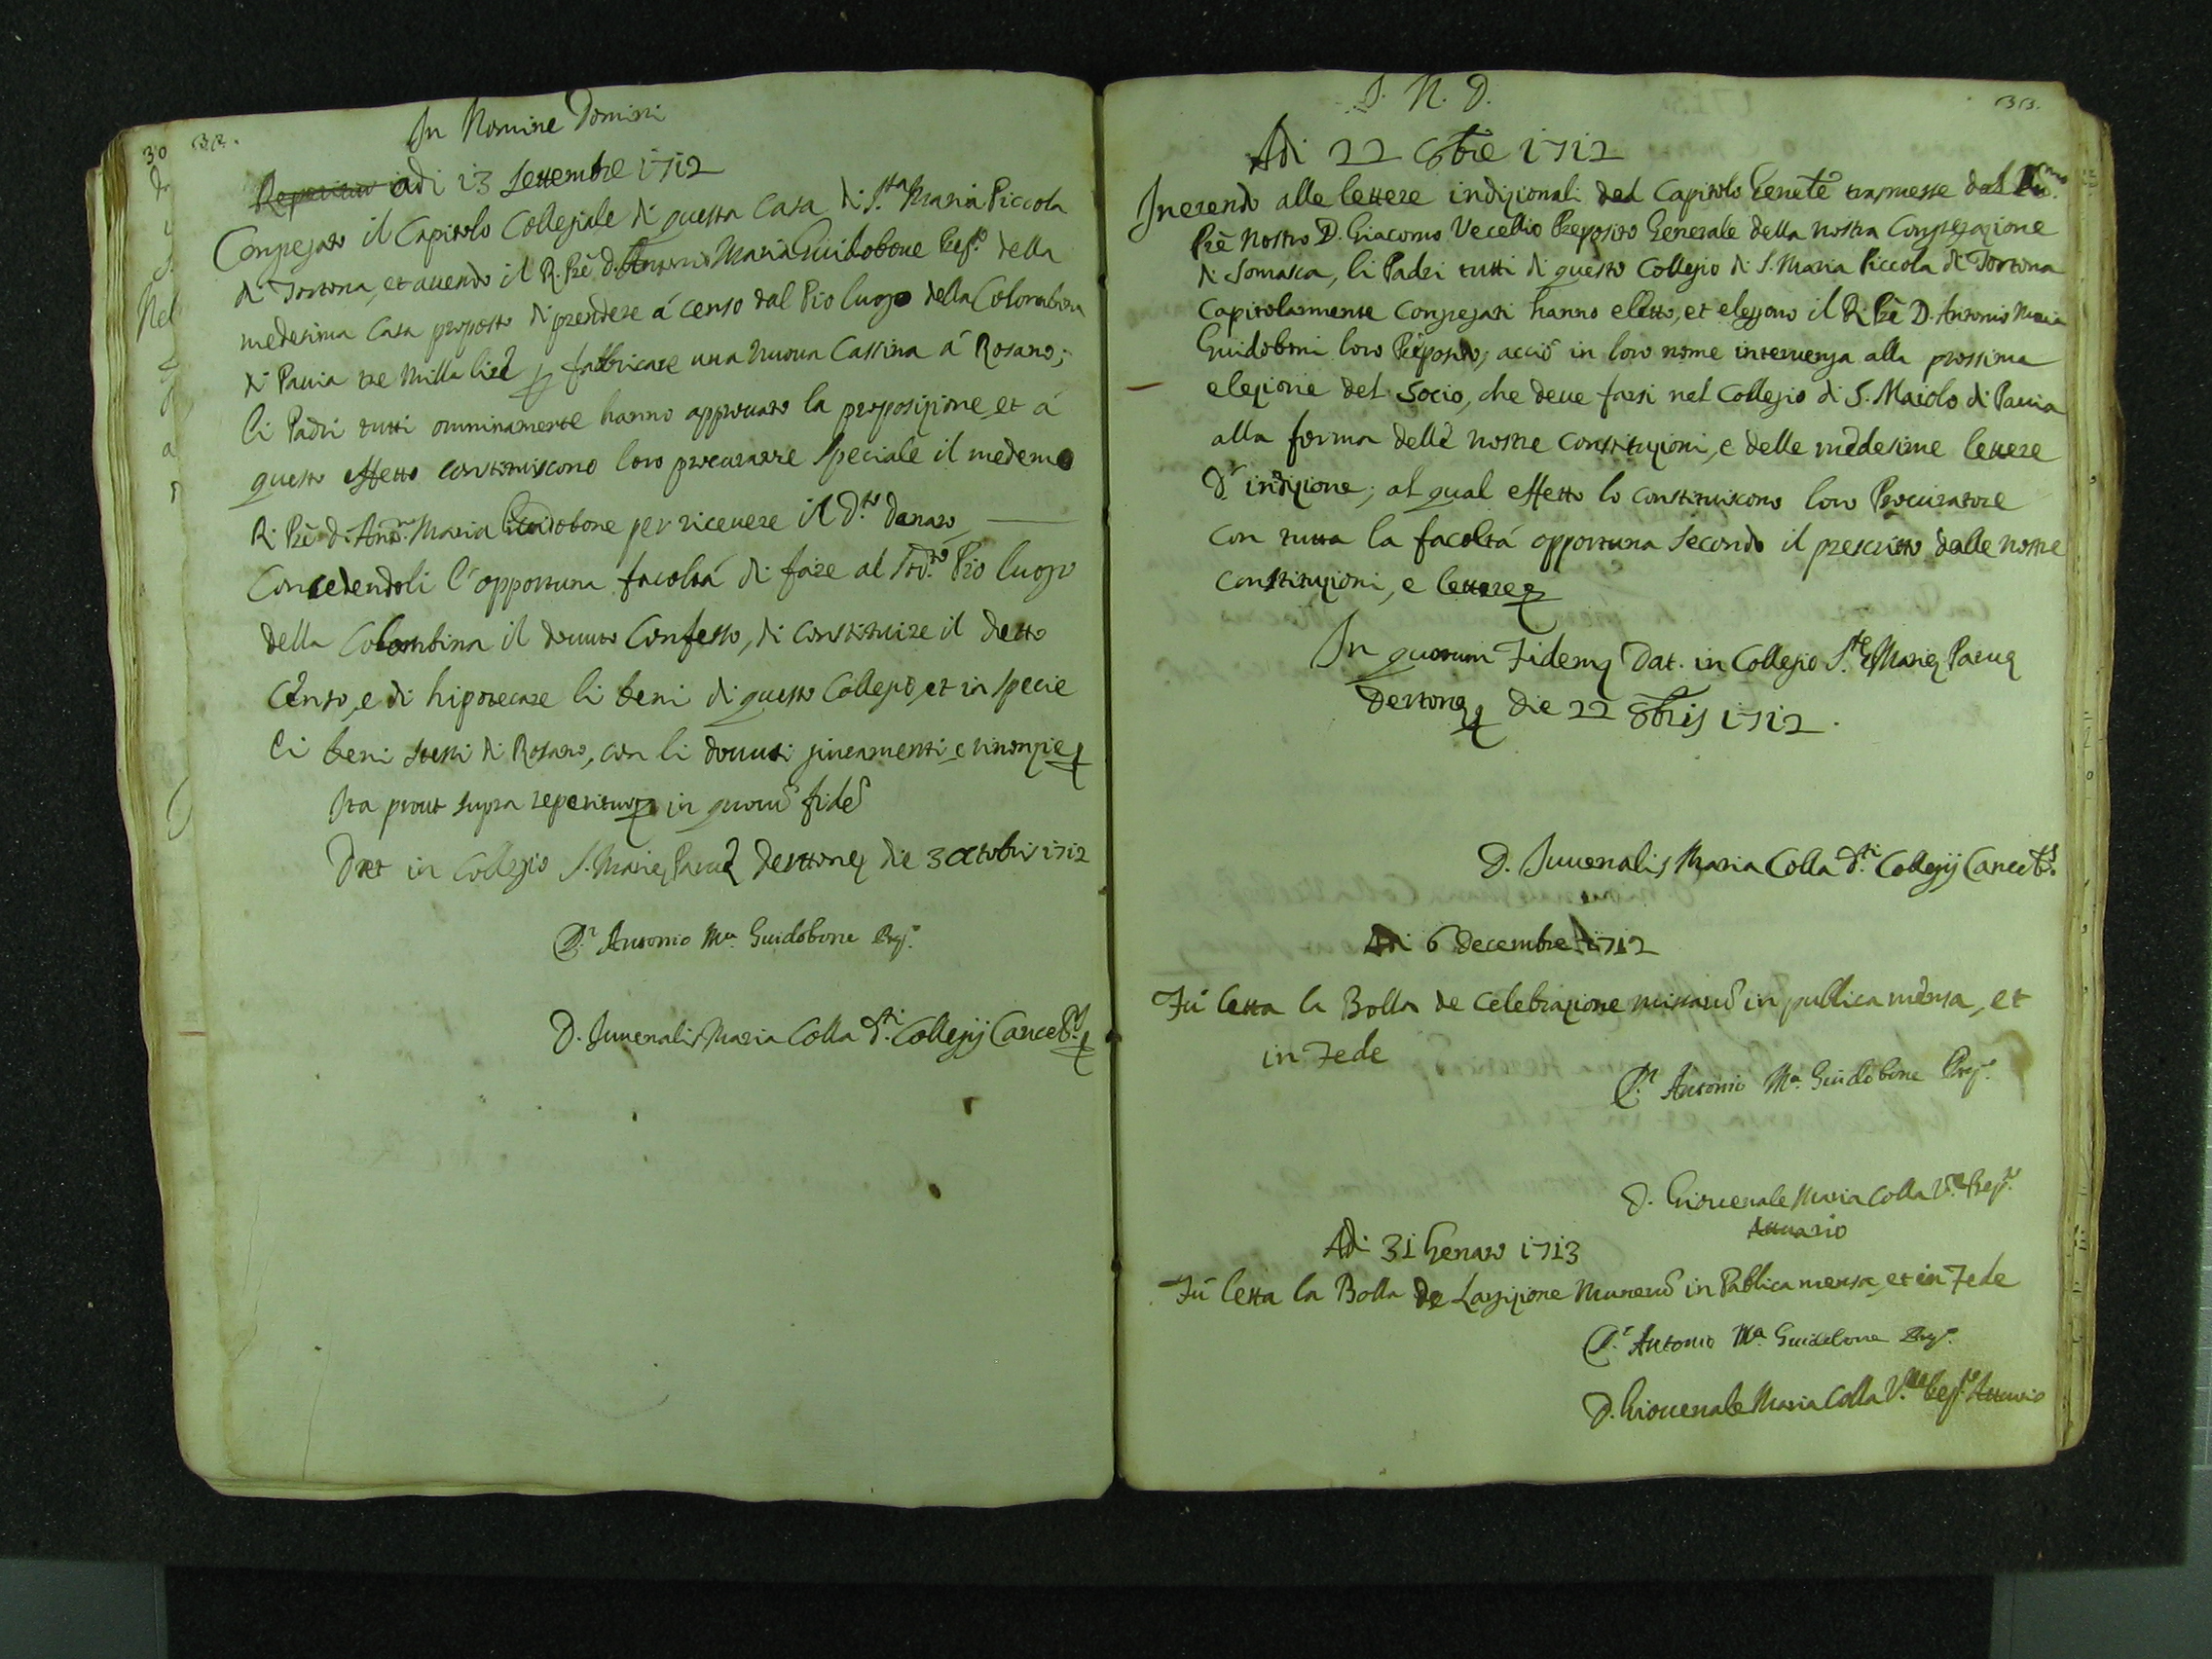 32.
In Nomine Domini
Reperitur adi 13 Settembre 1712
Congregato il Capitolo Collegiale di questa Casa di S.ta Maria Piccola
di Tortona, et auendo il R. Prē D. Antonio Maria Guidobone Prep.to della
medesima Casa proposto di prendere á censo dal Pio luogo della Colombina
di Pauia tre milla lire p fabbricare una nuoua Cassina á Rosano;
li Padri tutti omninamente hanno approuato la proposizione, et á
questo effetto constituiscono loro procuratore speciale il medemo
R. Prē D. Anto. Maria Guidobone per riceuere il d.to danaro
Concedendoli l'opportuna facoltá di fare al sud.to Pio luogo
della Colombina il douuto Confesso, di constituire il detto
Censo, e di hipotecare li beni di questo Collegio, et in specie
li beni stessi di Rosano, con li douuti giuramenti e rinonzie
Ita prout supra reperitur in quorū fidē
Dat in Collegio S. Marie Parue Derthone die 3 Octobris 1712
D. Antonio M.a Guidobone Prep.to
D. Iuuenalis Maria Colla d.ti Collegij Cancell.s
33.
I. N. D.
Adi 22 8bre 1712
Inerendo alle lettere indizionali del Capitolo Genlē trasmesse dal R.mo
Prē Nostro D. Giacomo Vecellio Preposito Generale della nostra Congregazione
di Somasca, li Padri tutti di questo Collegio di S. Maria Piccola di Tortona
Capitolarmente Congregati hanno eletto, et eleggono il R. Prē D. Antonio Maria
Guidoboni loro Preposto; acciò in loro nome interuenga alla prossima
elezione del Socio, che deue farsi nel Collegio di S. Maiolo di Pauia
alla forma delle nostre Constituzioni, e delle medesime lettere
d'indizione; al qual effetto lo constituiscono loro Procuratore
con tutta la facoltá opportuna secondo il prescritto dalle nostre
Constituzioni, e lettere
In quorum Fidem Dat. in Collegio S.te Marie Parue
Dertone die 22 8bris 1712.
D. Iuuenalis Maria Colla d.ti Collegij Cancell.s
Adi 6 Decembre 1712
Fú letta la Bolla de Celebrazione missarū in publica mensa, et
in Fede
D. Antonio M.a Guidobone Prep.to
D. Giouenale Maria Colla V. Prep.to
Attuario
Adi 31 Genaro 1713
Fú letta la Bolla de Largizione Munerū in Publica mensa, et in Fede
D. Antonio M.a Guidobone Prep.to
D. Giouenale Maria Colla V. Prep.to Attuario